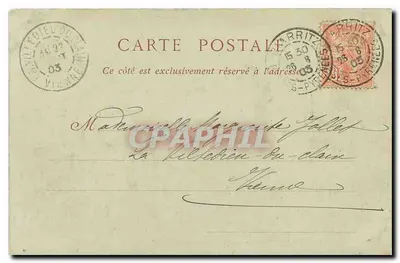 CARTE POSTALE
Ce côté est exclusivement réservé à l'adresse
BIARRITZ
15 30
03
Bses-PYRENEES
VIENNE
03
CPAPHIL
Mademoiselle Marguerite Jollet
La Villedieu-du-Clain
Vienne